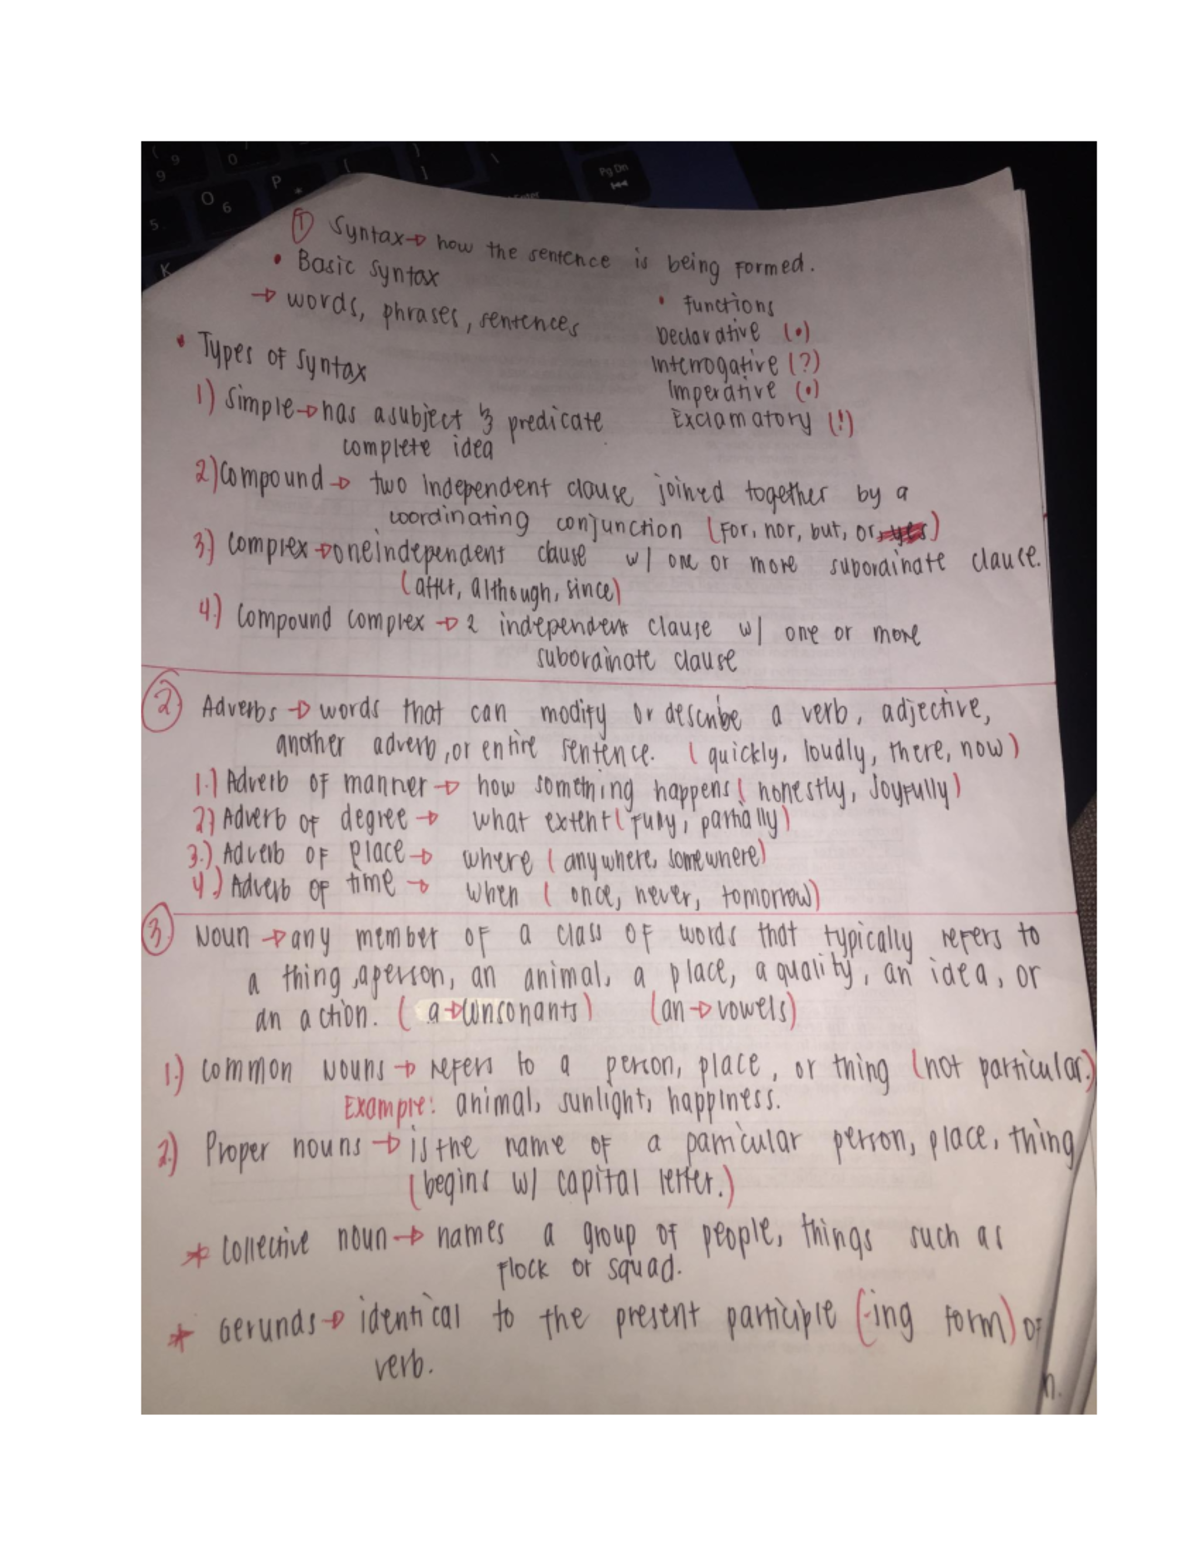 ① Syntax → how the sentence is being formed.
• Basic syntax
→ words, phrases, sentences
• Functions
Declarative (.)
Interrogative (?)
Imperative (.)
Exclamatory (!)
• Types of syntax
1) Simple → has a subject & predicate
complete idea
2) Compound → two independent clause joined together by a
coordinating conjunction (For, nor, but, or, yes)
3) Complex → one independent clause w/ one or more subordinate clause.
(after, although, since)
4.) Compound complex → 2 independent clause w/ one or more
subordinate clause
② Adverbs → words that can modify or describe a verb, adjective,
another adverb, or entire sentence. (quickly, loudly, there, now)
1.) Adverb of manner → how something happens (honestly, Joyfully)
2) Adverb of degree → what extent (fully, partially)
3.) Adverb of place → where (anywhere, somewhere)
4.) Adverb of time → when (once, never, tomorrow)
③ Noun → any member of a class of words that typically refers to
a thing, a person, an animal, a place, a quality, an idea, or
an action. (a → consonants) (an → vowels)
1.) Common Nouns → refers to a person, place, or thing (not particular.)
Example: animal, sunlight, happiness.
2.) Proper nouns → is the name of a particular person, place, thing
(begins w/ capital letter.)
* Collective noun → names a group of people, things such as
flock or squad.
* Gerunds → identical to the present participle (-ing form) of
verb.
n.